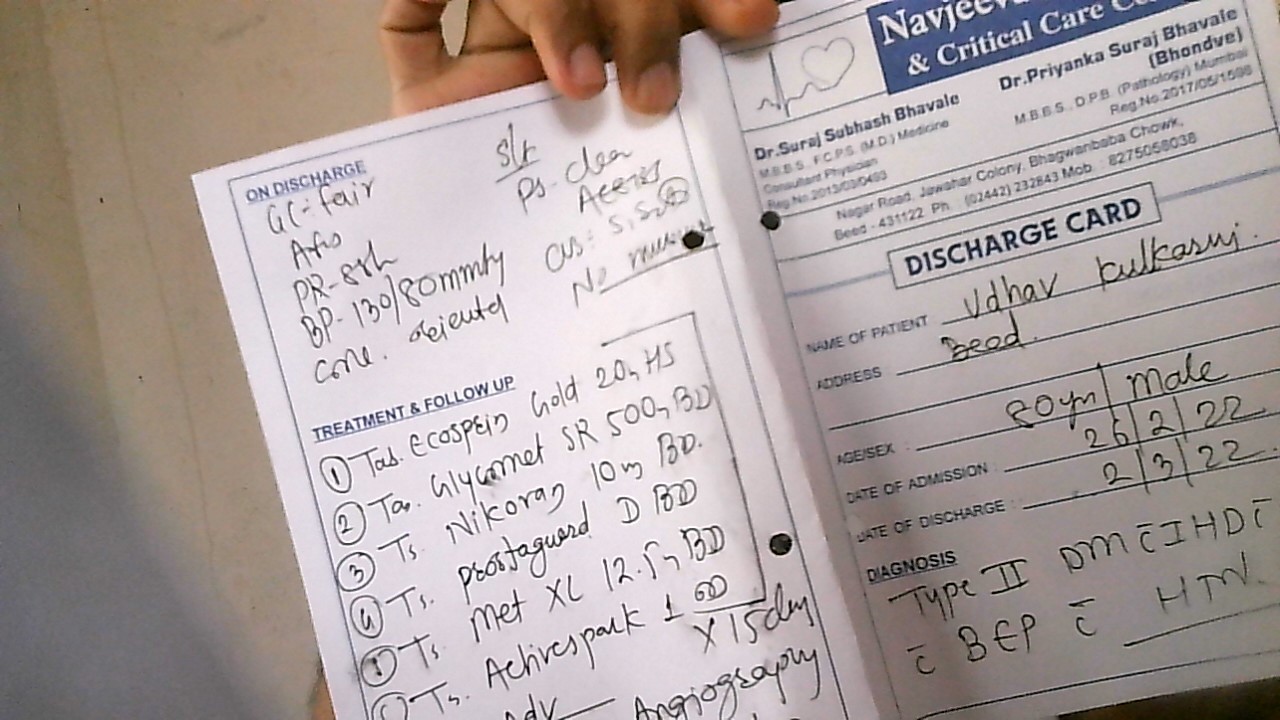 ON DISCHARGE
GC - fair
PR - 88/
BP - 130/80 mmHg
oriented
S/E
Ps - clear
AEEBS
CVS : S1 S2 ⊕
No murmur
TREATMENT & FOLLOW UP
① Tab. Ecosprin Gold 20 HS
② Ta. Glycomet SR 500 BD
③ T. Nikoran 10 BD.
④ T. prostaguard D BD
⑤ T. Met XL 12.5 BD
T. Activespark 1 OD
X 15 day
Adv Angiography
Navjeev
& Critical Care Ce
Dr.Suraj Subhash Bhavale
M.B.B.S., F.C.P.S. (M.D.) Medicine
Consultant Physician
Reg.No.2013/03/0493
Dr.Priyanka Suraj Bhavale
(Bhondve)
M.B.B.S., D.P.B. (Pathology) Mumbai
Reg.No.2017/05/1598
Nagar Road, Jawahar Colony, Bhagwanbaba Chowk,
Beed - 431122 Ph. : (02442) 232843 Mob. : 8275058038
DISCHARGE CARD
NAME OF PATIENT Udhav Kulkarni.
ADDRESS : Beed.
AGE/SEX : 80yr | male
DATE OF ADMISSION : 26 | 2 | 22
DATE OF DISCHARGE : 2 | 3 | 22.
DIAGNOSIS
Type II DM c̄ IHD c̄
c̄ BEP c̄ HTN.